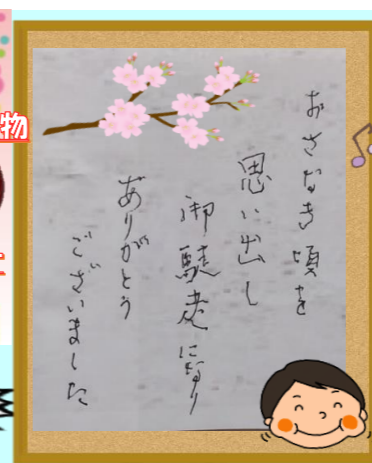 おさなき頃を
思い出し
御馳走になり
ありがとう
ございました
物